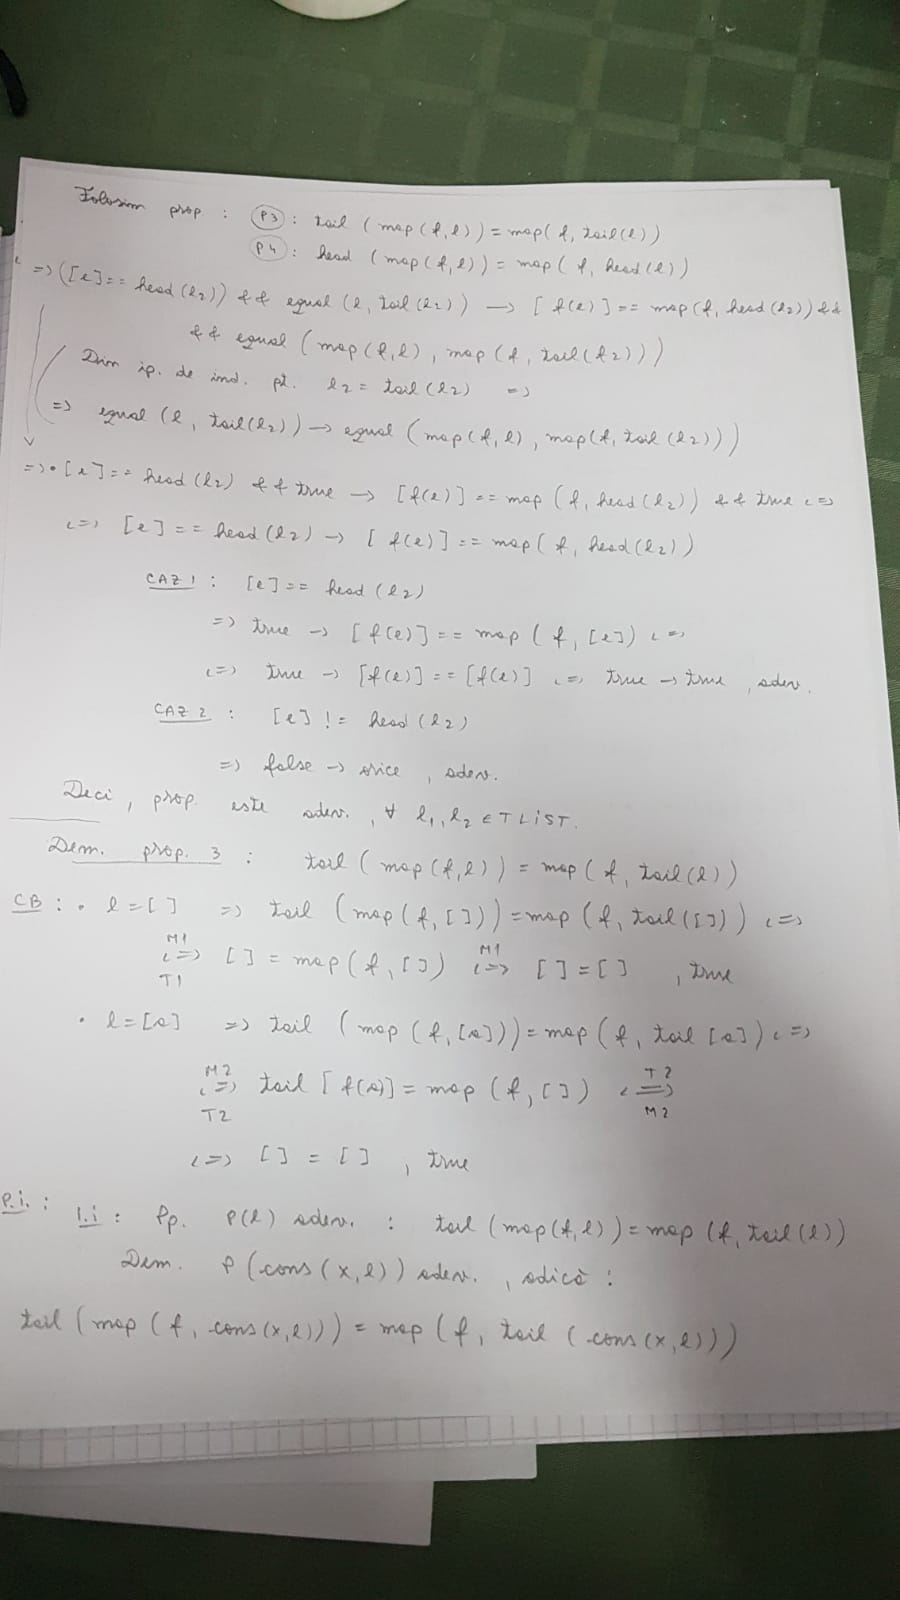 Folosim prop : (P3) : tail (map(f,l)) = map(f, tail(l))
(P4) : head (map(f,l)) = map(f, head(l))
=> ([e]== head(l2)) && equal(l, tail(l2)) → [f(e)]== map(f, head(l2)) &&
&& equal (map(f,l), map(f, tail(l2)))
Din ip. de ind. pt. l2 = tail(l2) =>
=> equal(l, tail(l2)) → equal(map(f,l), map(f, tail(l2)))
=> • [e]== head(l2) && true → [f(e)]== map(f, head(l2)) && true <=>
<=> [e]== head(l2) → [f(e)]== map(f, head(l2))
CAZ 1 : [e]== head(l2)
=> true → [f(e)]== map(f, [e]) <=>
<=> true → [f(e)]==[f(e)] <=> true → true, adev.
CAZ 2 : [e] != head(l2)
=> false → orice, adev.
Deci, prop. este adev., ∀ l1, l2 ∈ TLIST.
Dem. prop. 3 : tail (map(f,l)) = map(f, tail(l))
CB : • l=[] => tail (map(f,[])) = map(f, tail([])) <=>
M1 M1
<=> [] = map(f,[]) <=> [] = [] , true
T1
• l=[a] => tail (map(f,[a])) = map(f, tail [a]) <=>
M2 T2
<=> tail [f(a)] = map(f,[]) <=>
T2 M2
<=> [] = [] , true
P.i. : I.i : Pp. P(l) adev. : tail (map(f,l)) = map(f, tail(l))
Dem. P(cons(x,l)) adev., adică :
tail (map(f, cons(x,l))) = map(f, tail(cons(x,l)))